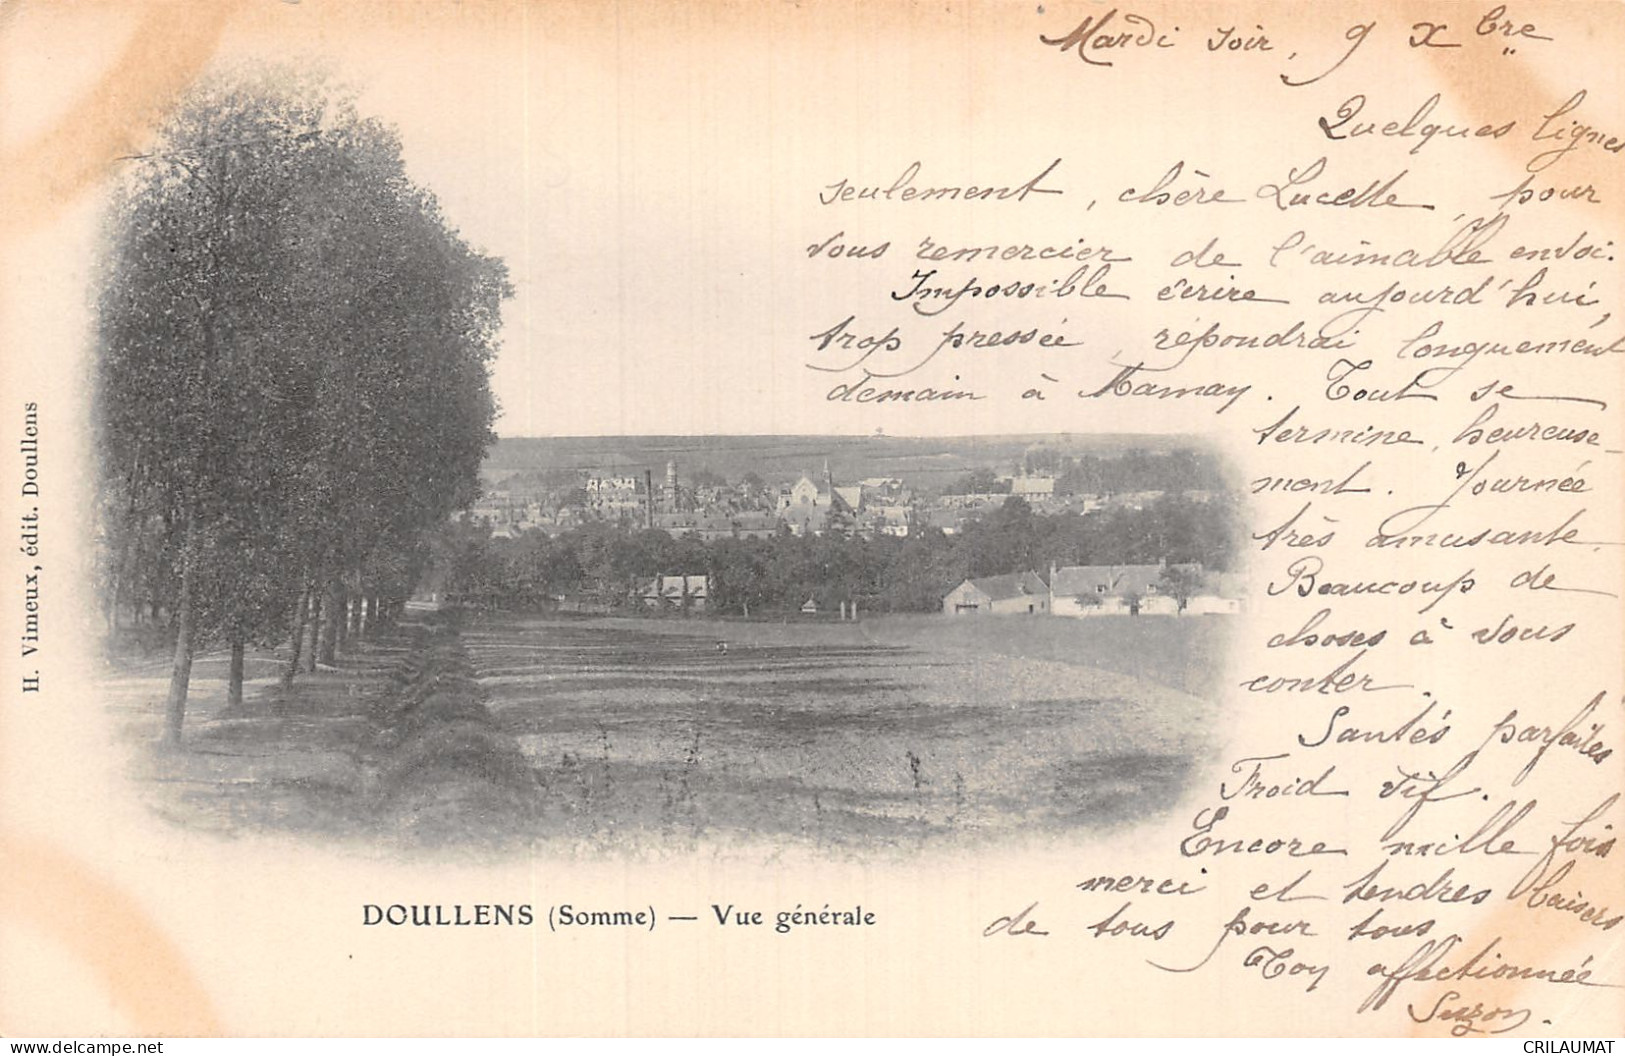 Mardi soir, 9 Xbre
Quelques lignes
seulement, chère Lucette, pour
vous remercier de l'aimable envoi.
Impossible écrire aujourd'hui,
trop pressée, répondrai longuement
demain à Mamay. Tout se
termine, heureuse-
ment. Journée
très amusante.
Beaucoup de
choses à vous
conter.
Santés parfaites
Froid vif.
Encore mille fois
merci et tendres baisers
de tous pour tous
affectionnée
Suzon.
H. Vimeux, édit. Doullens
DOULLENS (Somme) — Vue générale
CRILAUMAT